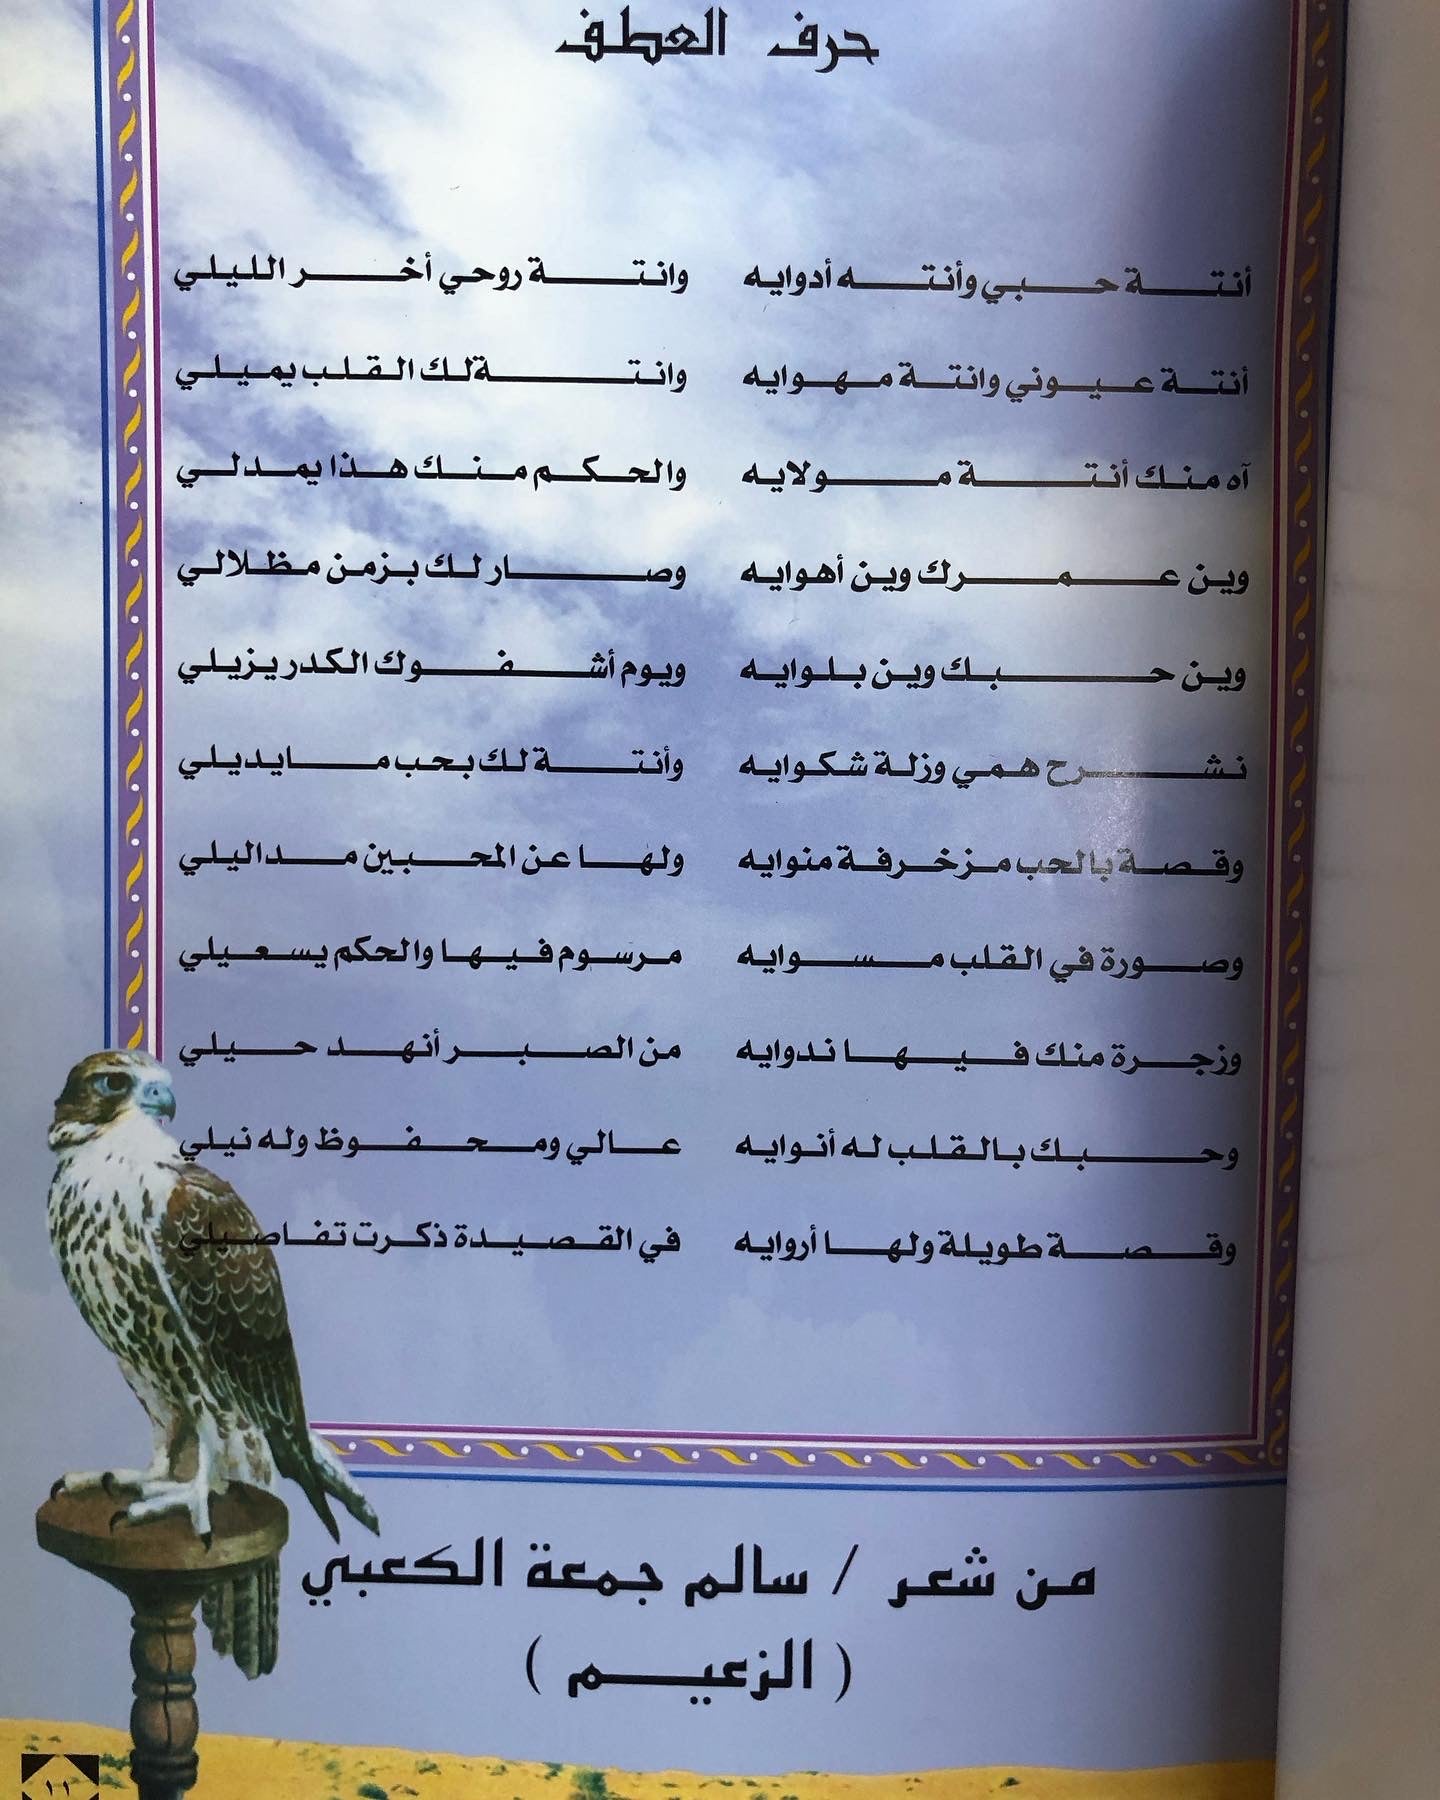 حرف العطف
أنتة حبي وأنته أدوايه وانتة روحي أخر الليلي
أنتة عيوني وانتة مهوايه وانتة لك القلب يميلي
آه منك أنتة مولايه والحكم منك هذا يمدلي
وين عمرك وين أهوايه وصار لك بزمن مظلالي
وين حبك وين بلوايه ويوم أشفوك الكدر يزيلي
نشرح همي وزلة شكوايه وأنتة لك بحب مايديلي
وقصة بالحب مزخرفة منوايه ولها عن المحبين مداليلي
وصورة في القلب مسوايه مرسوم فيها والحكم يسعيلي
وزجرة منك فيها ندوايه من الصبر أنهد حيلي
وحبك بالقلب له أنوايه عالي ومحفوظ وله نيلي
وقصة طويلة ولها أروايه في القصيدة ذكرت تفاصيلي
من شعر / سالم جمعة الكعبي
( الزعيم )
١١